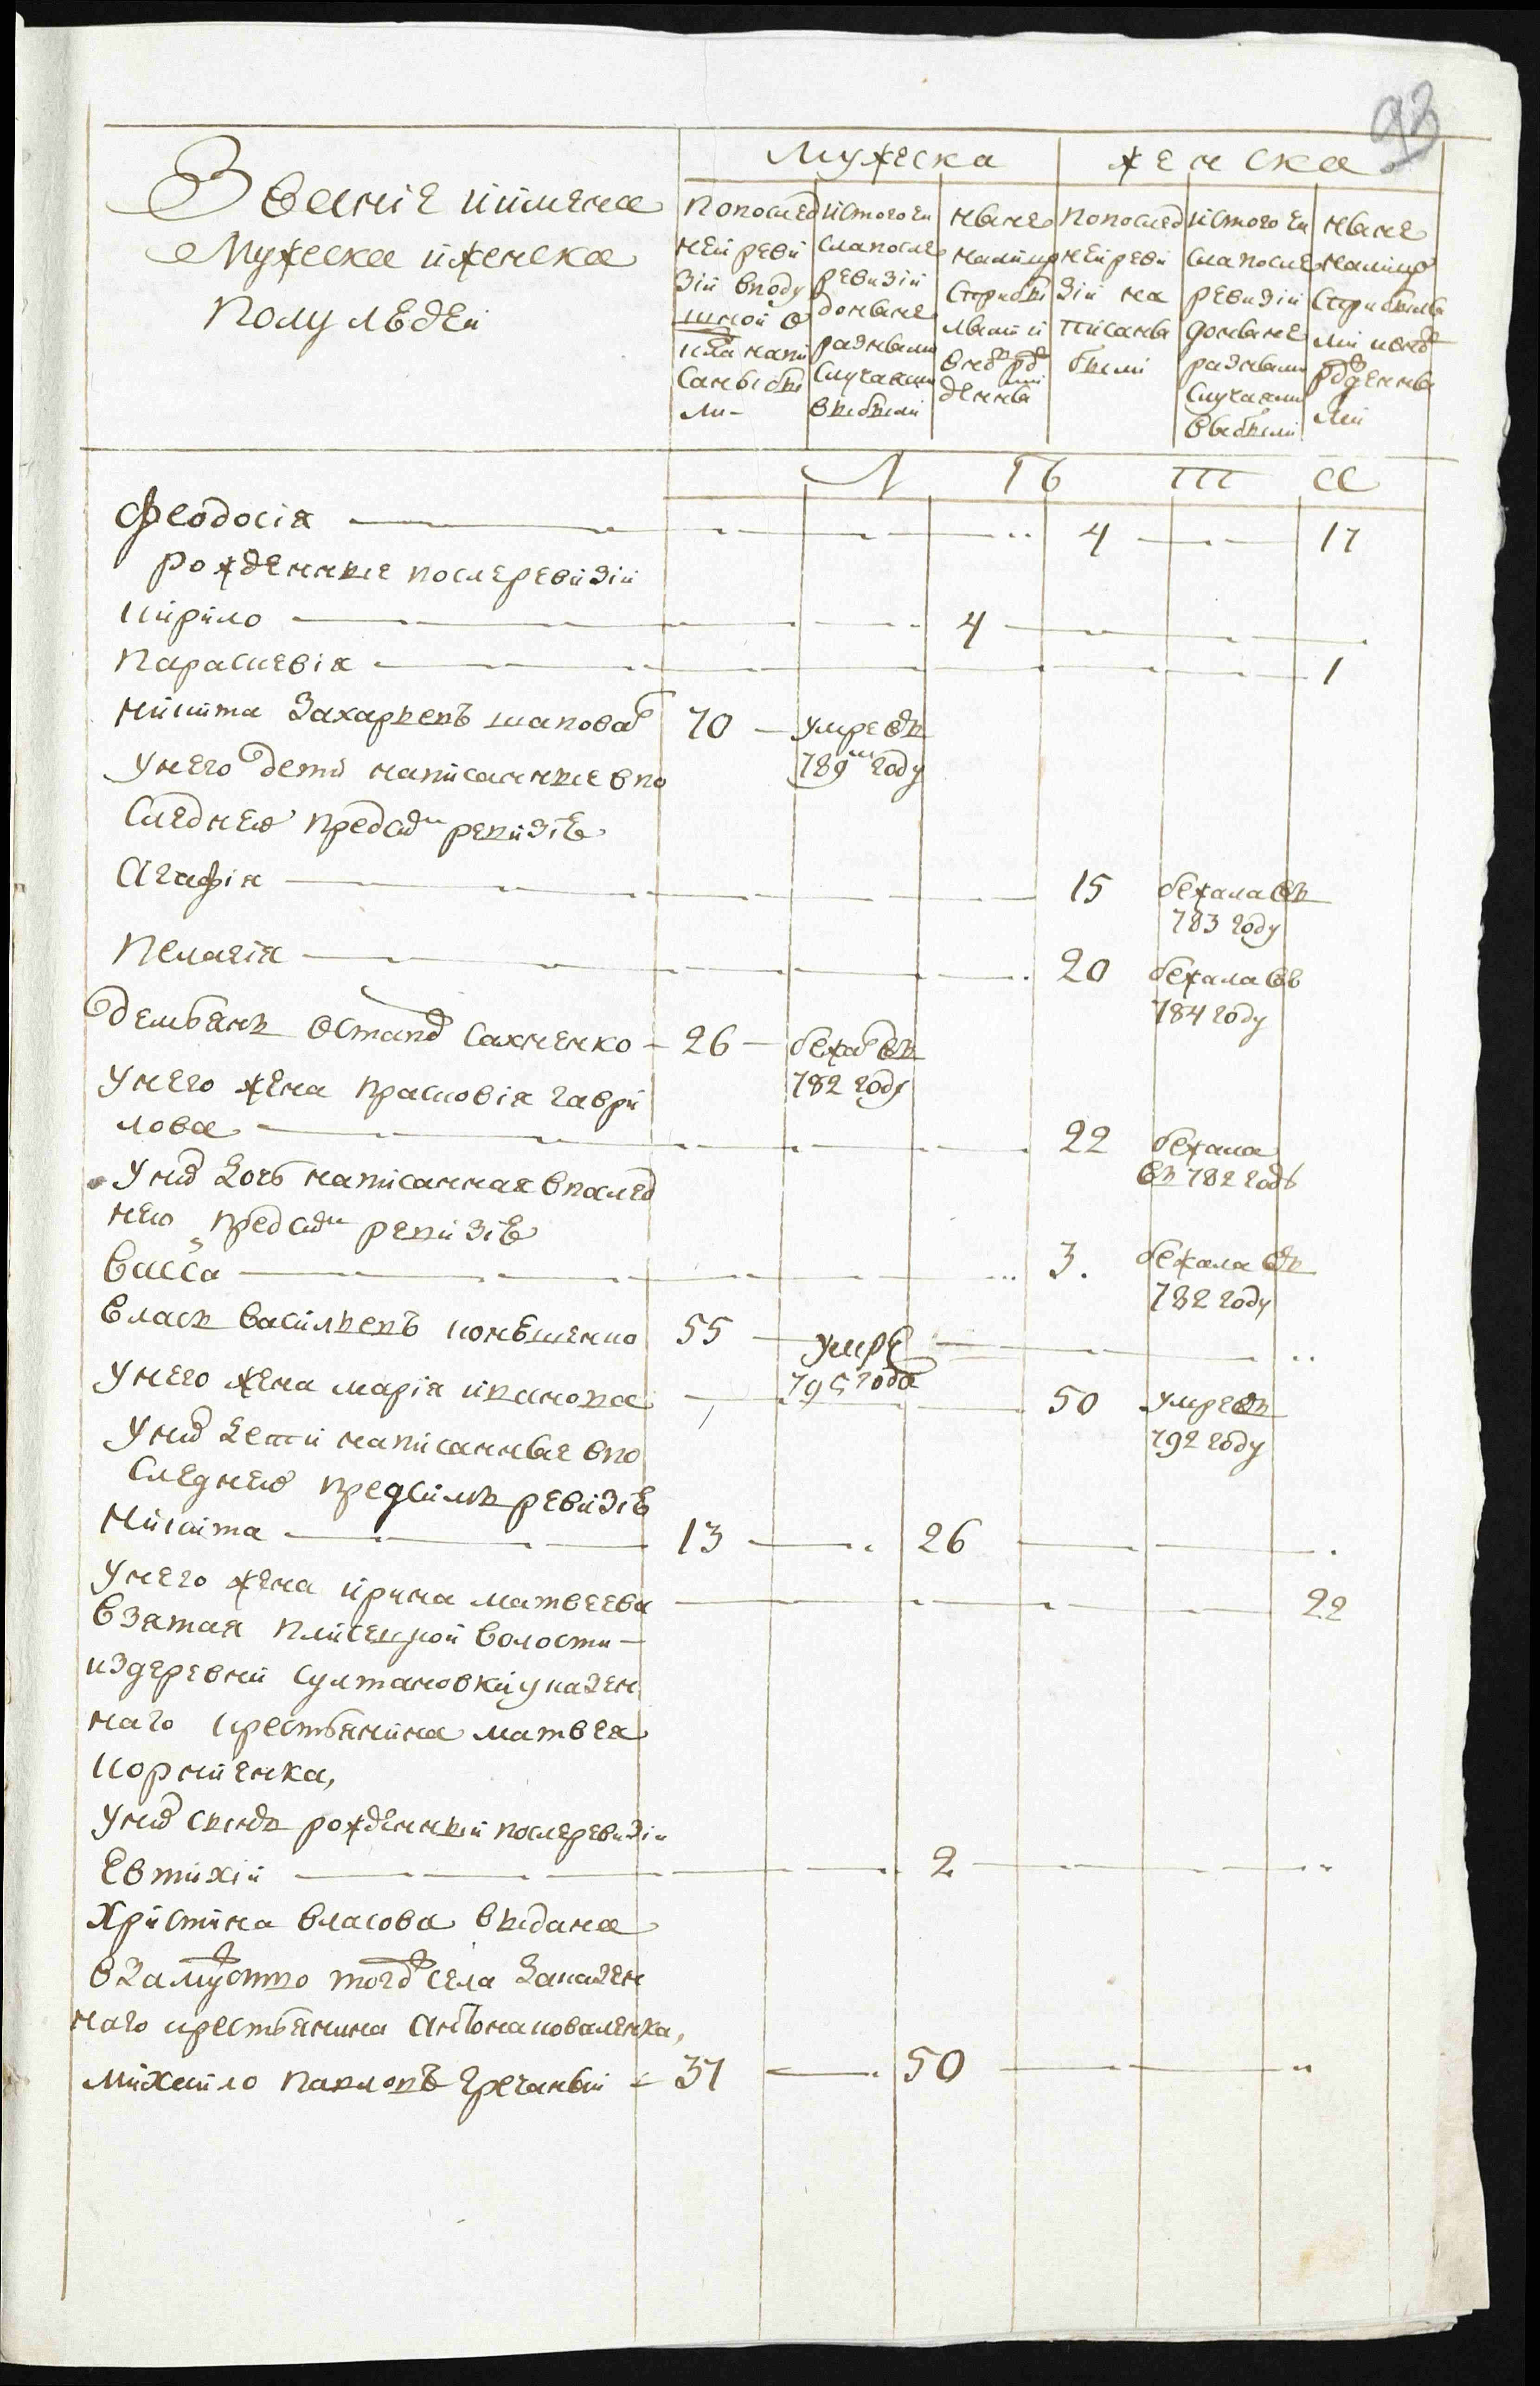 93
Званіе иимена
Мужеска иженска
полу людей
Мужеска
женска
Попослед
ней реви
зіи вподу
шной о
клад напи
саны бы
ли-
Истого чи
сла после
ревизіи
доныне
разными
случаями
выбыли
Ныне
налицо
Старибы
лыми и
вновь рож
денными
Попослед
ней реви
зіи на
писаны
были
Истого чи
сла после
ревизіи
доныне
разными
случаями
выбыли
Ныне
налицо
Старибылы
ми ивновь
рожденны
ми
Л Ѣ Т А
Феодосія 4 17
рожденные послеревизіи
Кирило 4
Параскевія 1
Никита Захарьевъ шаповал 70 умре въ
789м году
Унего дети написанные впо
следнею предсим ревизіѣ
Агафія 15 бежала въ
783 году
Пелагія 20 бежала въ
784 году
Демьянъ Остапов Сахненко 26 бежал въ
782 году
Унего жена Прасковія Гаври
лова 22 бежала
въ 782 году
Уних дочь написанная впослед
нею предсим ревизіѣ
Васса 3. бежала въ
782 году
Власъ Васильевъ конѣшенко 55 умре
795 года
Унего жена Марія иванова 50 умре въ
792 году
Уних дети написанные впо
следнею предсимъ ревизіѣ
Никита 13 26
Унего жена ирина матвеева 22
взятая Плисецкой волости
издеревни султановки указен
наго крестьянина матвея
корніенка,
Уних сынъ рожденный послеревизіи
Евтихій 2
Христина власова выдана
взамуство тогож села заказен
наго крестьянина Антона коваленка,
Михайло Павловъ Гречаный 37 50